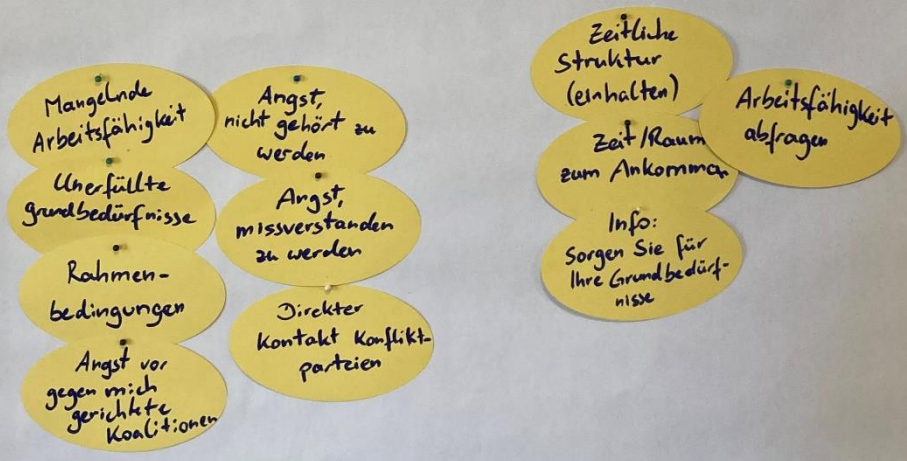 Mangelnde
Arbeitsfähigkeit
Unerfüllte
grundbedürfnisse
Rahmen-
bedingungen
Angst vor
gegen mich
gerichtete
Koalitionen
Angst,
nicht gehört zu
werden
Angst,
missverstanden
zu werden
Direkter
Kontakt Konflikt-
parteien
Zeitliche
Struktur
(einhalten)
Zeit/Raum
zum Ankommen
Info:
Sorgen Sie für
Ihre Grundbedürf-
nisse
Arbeitsfähigkeit
abfragen